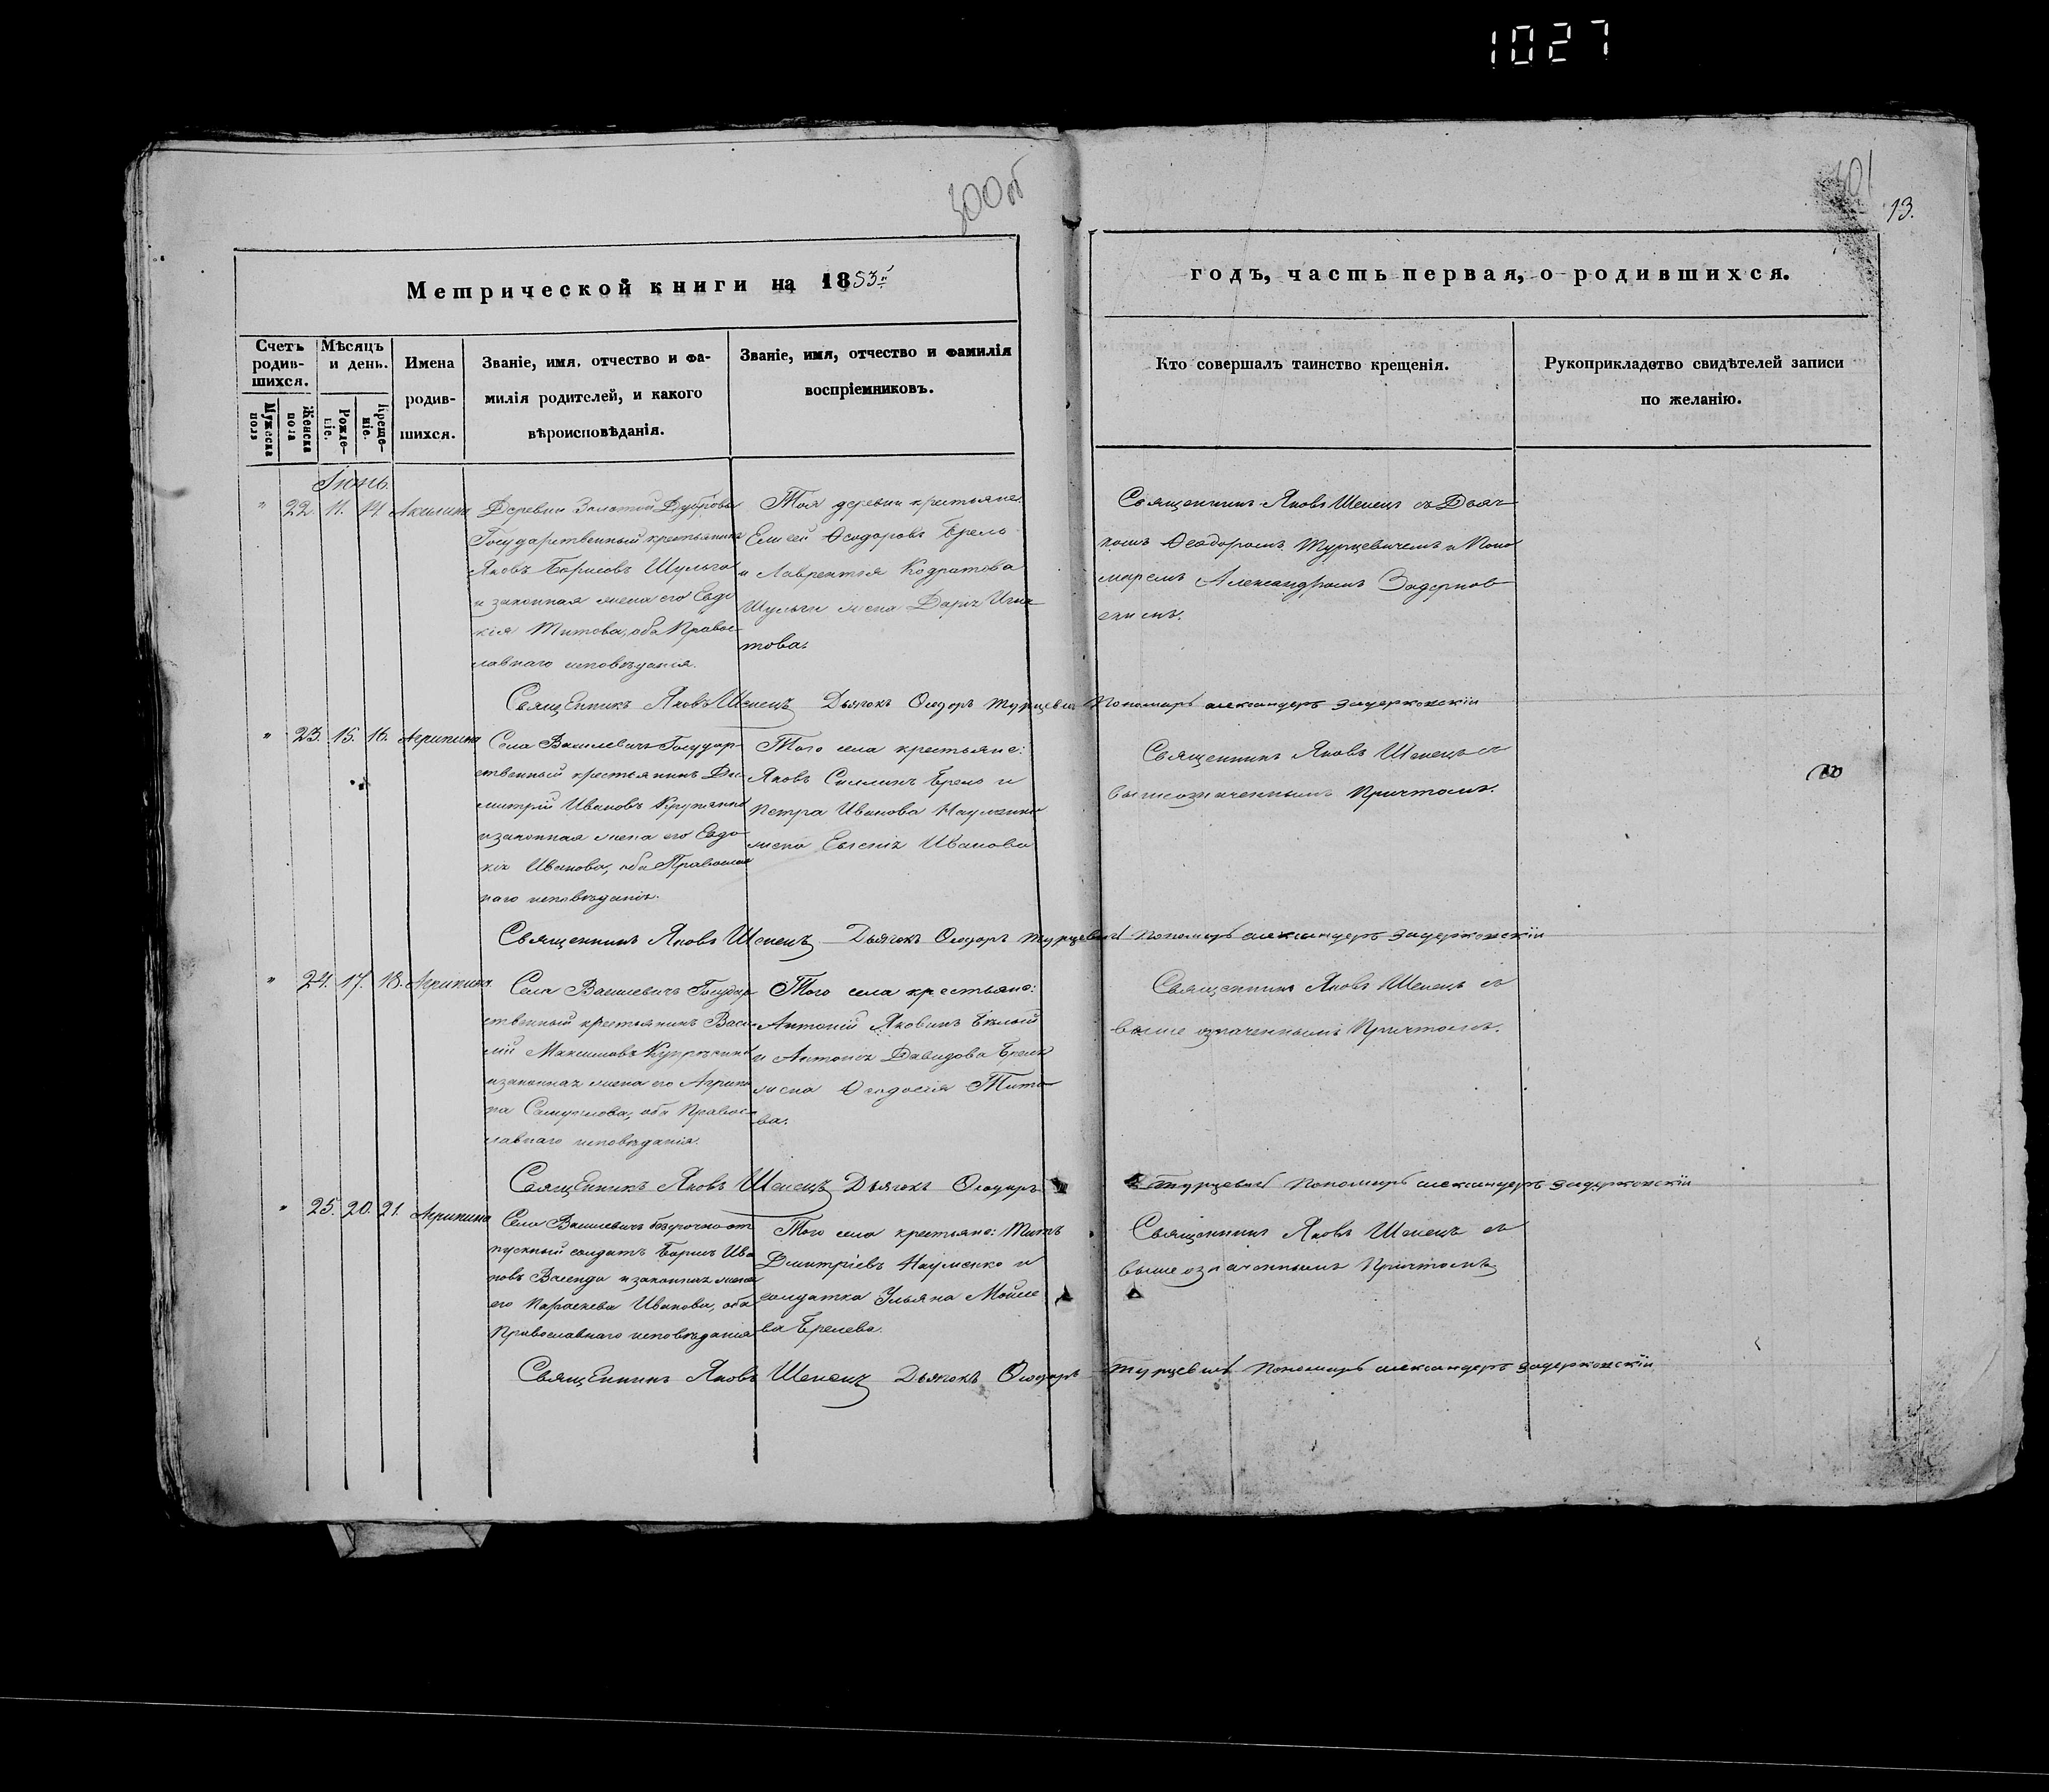 1027
300об
301
13.
Метрической книги на 1853й
годъ, часть первая, о родившихся.
Счетъ родив-шихся.
Мужеска пола
Женска пола
Мѣсяцъ и день.
Рожде-ніе.
Креще-ніе.
Имена родив-шихся.
Званіе, имя, отчество и фа-
милія родителей, и какого
вѣроисповѣданія.
Званіе, имя, отчество и фамилія
воспріемниковъ.
Кто совершалъ таинство крещенія.
Рукоприкладство свидѣтелей записи
по желанію.
Іюнь.
" 22. 11. 14. Акилина
Деревни Золотой Дубровы
Государственный крестьянинъ
Яковъ Борисовъ Шульга
и законная жена его Евдо
кія Титова, оба Правос-
лавнаго исповѣданія.
Тоя деревни крестьяне:
Елисей Ѳеодоровъ Брель
и Лаврентія Кодратова
Шульги жена Дарія Игна-
това.
Священникъ Яковъ Шенецъ съ Дьяч-
комъ Ѳеодоромъ Турцевичемъ и Поно
маремъ Александромъ Задерков-
скимъ.
Священникъ Яковъ Шенецъ Дьячокъ Ѳеодоръ Турцевичъ Пономарь александеръ Задерковскій
" 23. 15. 16. Агрипина
Села Василевичъ Государ-
ственный крестьянинъ Ди
митрій Ивановъ
и законная жена его Евдо
кія Иванова, оба Православ
наго исповѣданія.
Того села крестьяне:
Яковъ Брель и
Петра Иванова Науменки
жена Евгенія Иванова
Священникъ Яковъ Шенецъ съ
вышеозначеннымъ Причтомъ.
Священникъ Яковъ Шенецъ Дьячокъ Ѳеодоръ Турцевичъ Пономарь александеръ Задерковскій
" 24. 17. 18. Агрипина
Села Василевичъ Государ
ственный крестьянинъ Васи
лій Максимовъ
и законная жена его Агрипи
на Самуилова, оба Правос-
лавнаго исповѣданія.
Того села крестьяне:
Антоній Яковинъ Бѣлый
и Антонія Давидова Брель
жена Ѳеодосія Тито
ва.
Священникъ Яковъ Шенецъ съ
выше означеннымъ Причтомъ.
Священникъ Яковъ Шенецъ Дьячокъ Ѳеодоръ Турцевичъ Пономарь александеръ Задерковскій
" 25. 20. 21. Агрипина
Села Василевичъ безсрочно от
пускный солдатъ Борисъ Ива
новъ и законная жена
его Параскева Иванова, оба
Православнаго исповѣданія
Того села крестьяне: Титъ
Дмитріевъ Науменко и
солдатка Ульяна Мойсе
ва Брелева.
Священникъ Яковъ Шенецъ съ
выше означеннымъ Причтомъ
Священникъ Яковъ Шенецъ Дьячокъ Ѳеодоръ Турцевичъ Пономарь александеръ Задерковскій